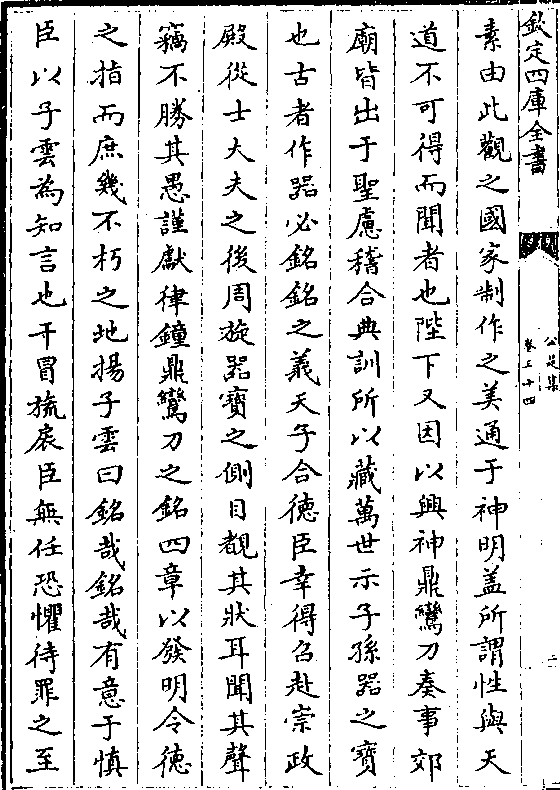 欽定四庫全書
公是集
卷三十四
二
素由此觀之國家制作之美通于神明盖所謂性與天
道不可得而聞者也陛下又因以興神鼎鸞刀奏事郊
廟皆出于聖慮稽合典訓所以藏萬世示子孫器之寶
也古者作器必銘銘之義天子合徳臣幸得召赴崇政
殿從士大夫之後周旋器寶之側目覩其狀耳聞其聲
竊不勝其愚謹獻律鐘鼎鸞刀之銘四章以發明令徳
之指而庶幾不朽之地揚子雲曰銘哉銘哉有意于慎
臣以子雲為知言也干冒旒扆臣無任恐懼待罪之至